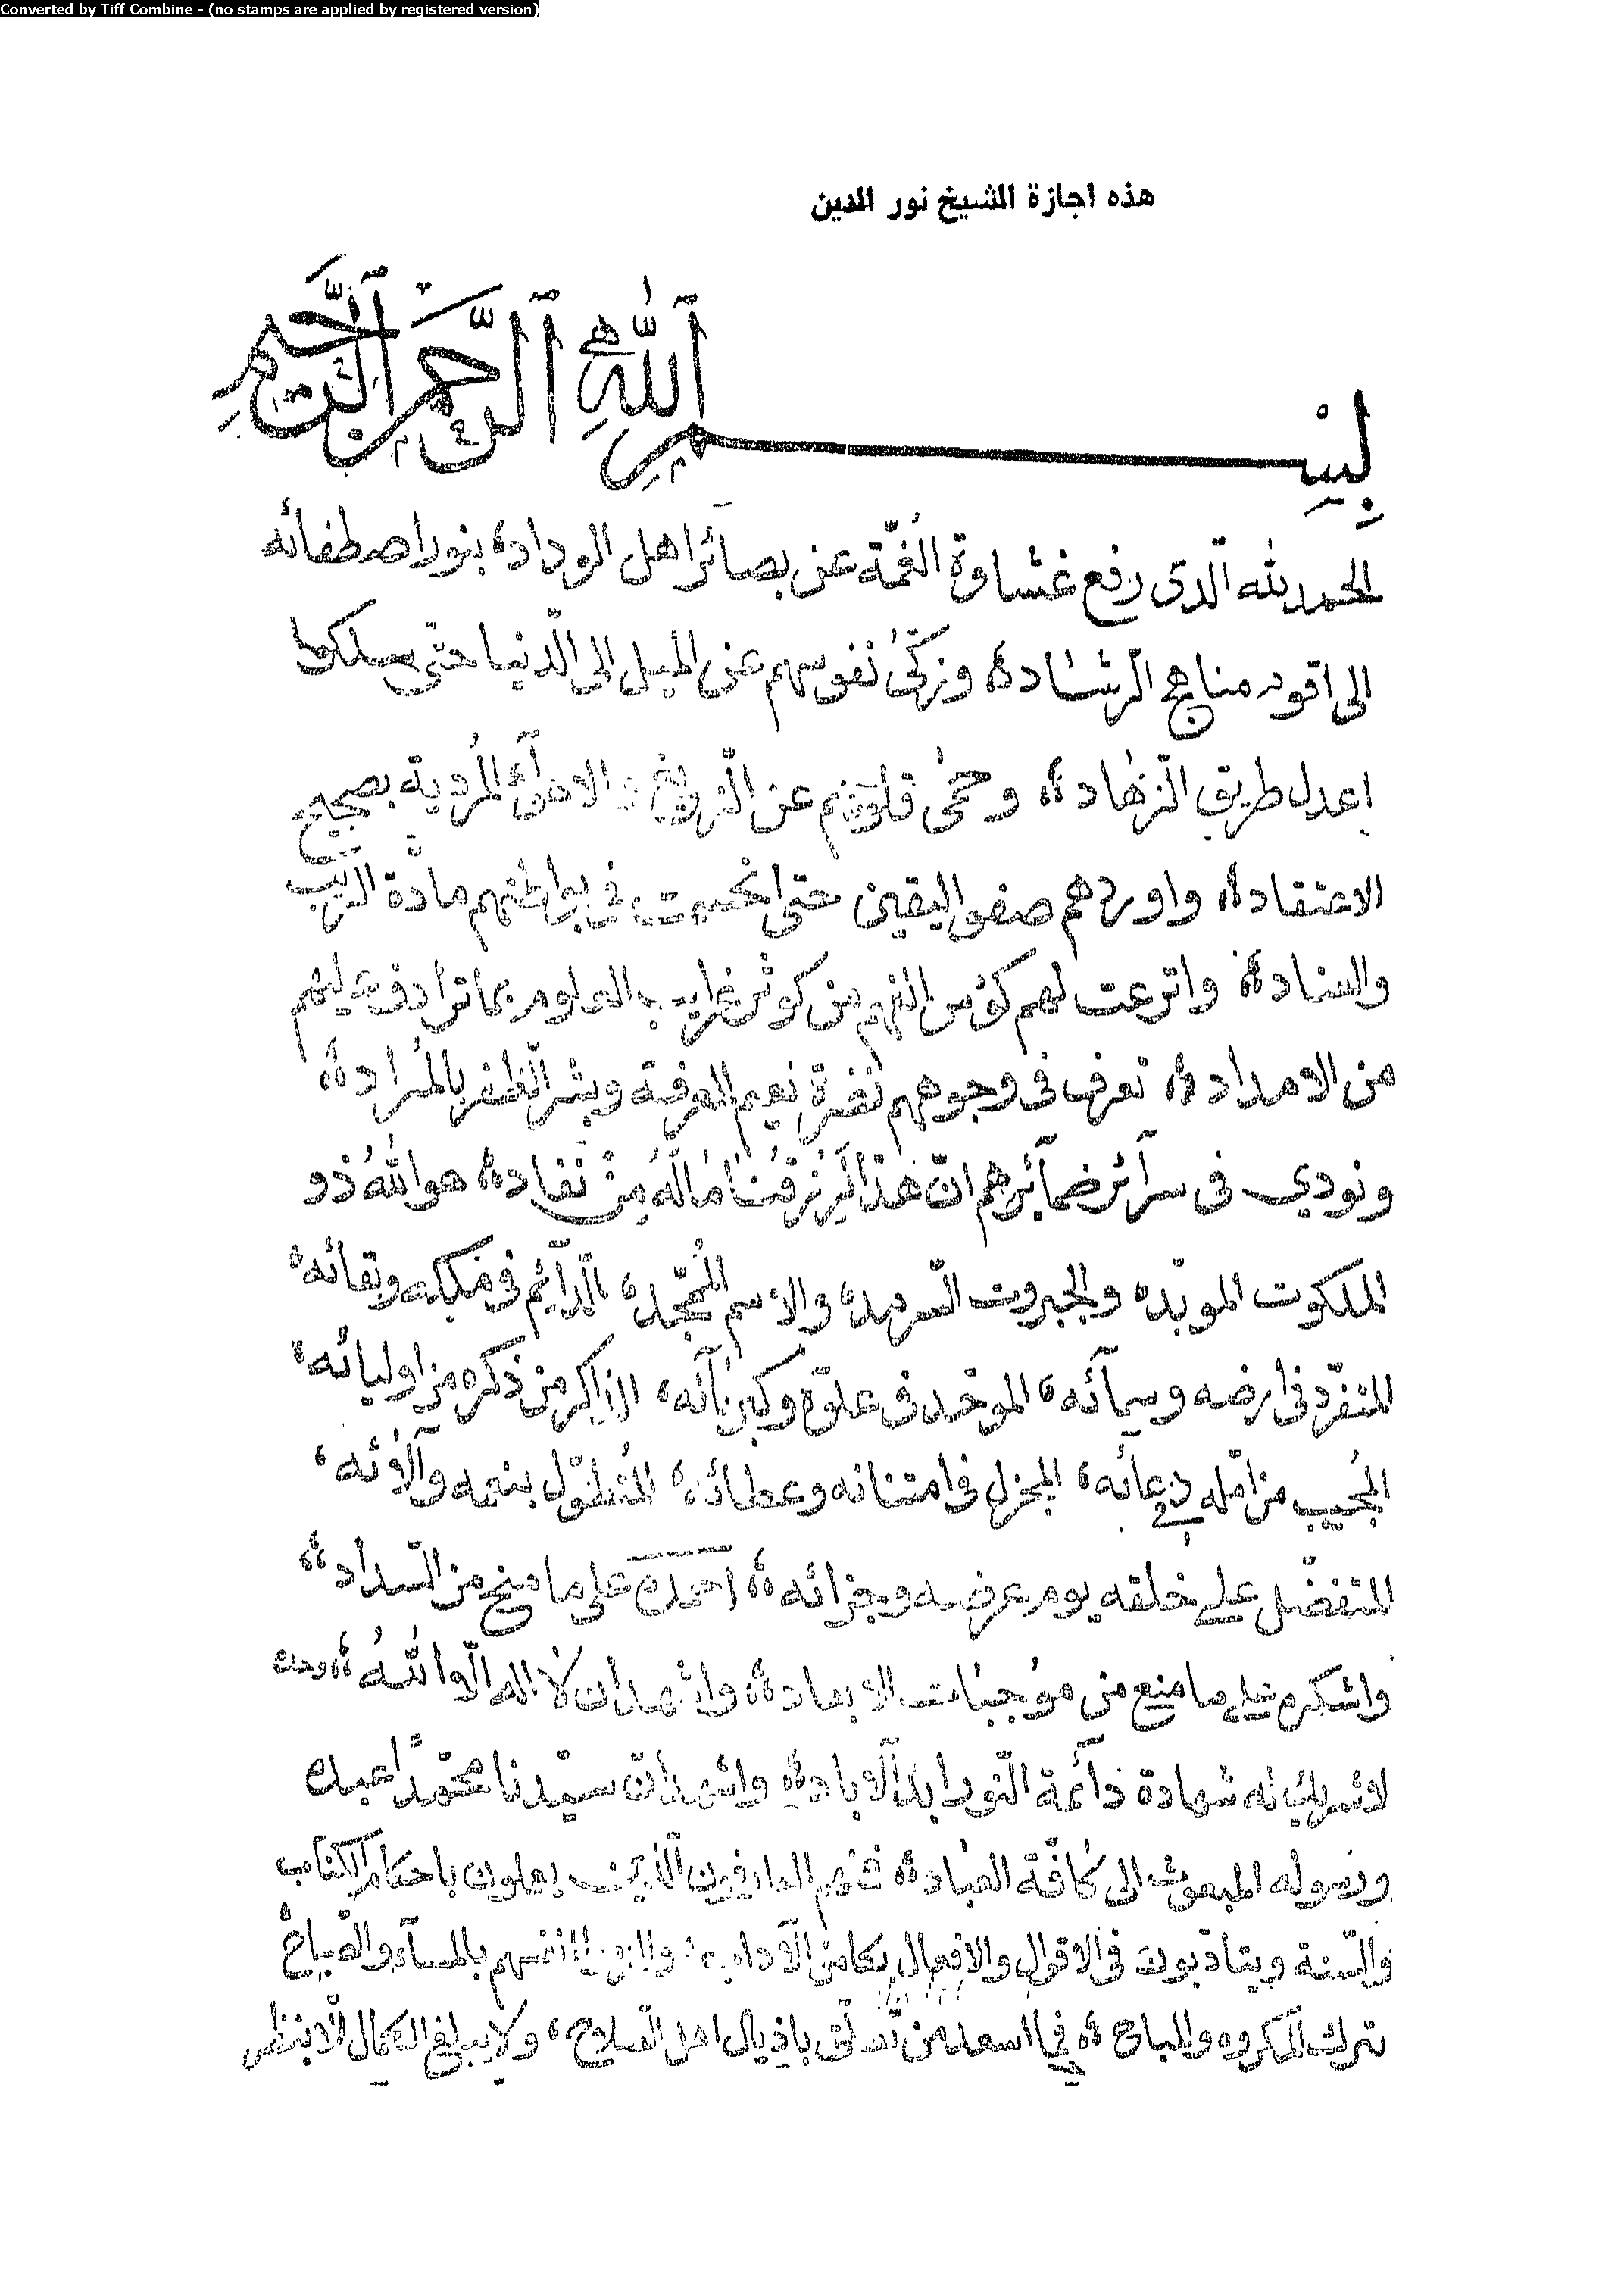 Converted by Tiff Combine - (no stamps are applied by registered version)
هذه اجازة الشيخ نور الدين
بسم الله الرحمن الرحيم
الحمد لله الذى رفع غشاوة الغمّة عن بصائر اهل الوداد، بنور اصطفائه
الى اقوم مناهج الرشاد، وزكّى نفوسهم عن الميل الى الدّنيا حتى سلكوا
اعدل طريق الزهاد، وحمى قلوبهم عن الزيغ الاهوآء المُردية بصحيح
الاعتقاد، واوردهم صفو اليقين حتى فى بواطنهم مادّة الريب
والعناد، واترعت لهم كؤس الفهم من كوثر غرايب العلوم بما ترادف عليهم
من الامداد، تعرف فى وجوههم نضرة نعيم المعرفة وبشر الظفر بالمُراد،
ونودي فى سرآئر ضمآئرهم انّ هٰذا لرزقُنا مٰا لَهُ مِنْ نَفاد، هو اللهُ ذو
الملكوت المؤبّد، والجبروت السّرمد، والاسم المُمجّد، الدّآئم فى ملكه وبقائه،
المتفرّد فى ارضه وسمآئه، الموحّد فى علوّه وكبريآئه، الذاكر من ذكره من اوليائه،
المُجيب من امّله فى دعآئه، المجزل فى امتنانه وعطائه، المُتطوّل بنعمه وآلآئه،
المتفضّل على خلقه يوم عرضه وجزائه، احمده على ما منح من السّداد،
واشكره على ما منع من موجبات الابعاد، واشهد ان لا اله الّا اللهُ، وحده
لا شريك له شهادة دآئمة النّور ابد الآباد، واشهد انّ سيّدنا محمّدًا عبده
ورسوله المبعوث الى كافّة العباد، العارفون الّذين يعملون باحكام الكتاب
والسّنة ويتأدّبون فى الاقوال والافعال بكامل الآداب، انفسهم بالمسآء والصّباح
بترك المكروه والمباح، فيا اسعد من تعلّق باذيال اهل الصلاح، ولا يبلغ الكمال الّا بنظر